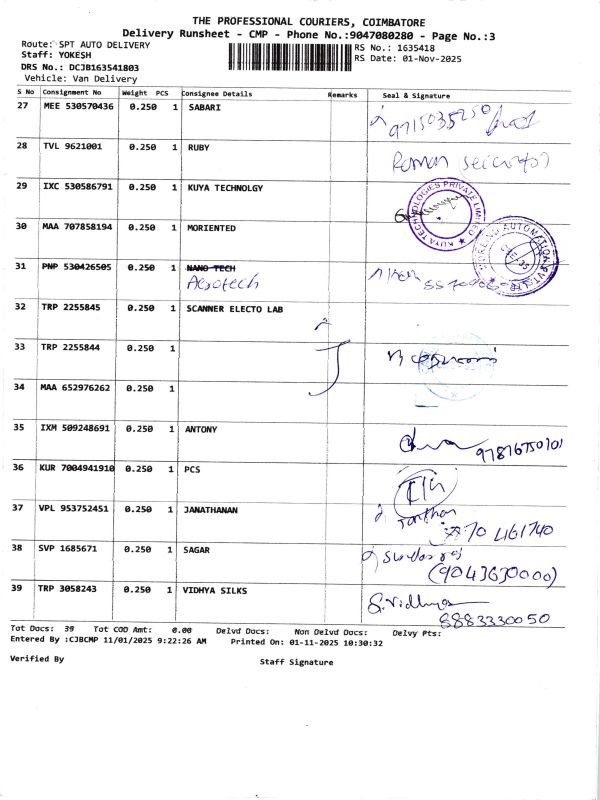 THE PROFESSIONAL COURIERS, COIMBATORE
Delivery Runsheet - CMP - Phone No.:9047080280 - Page No.:3
Route: SPT AUTO DELIVERY
Staff: YOKESH
DRS No.: DCJB163541803
Vehicle: Van Delivery
RS No.: 1635418
RS Date: 01-Nov-2025
S No Consignment No Weight PCS Consignee Details Remarks Seal & Signature
27 MEE 530570436 0.250 1 SABARI
9715035250
28 TVL 9621001 0.250 1 RUBY
29 IXC 530586791 0.250 1 KUYA TECHNOLGY
KUYA TECHNOLOGIES PRIVATE LIMITED
30 MAA 707858194 0.250 1 MORIENTED
31 PNP 530426505 0.250 1 NANO TECH
32 TRP 2255845 0.250 1 SCANNER ELECTO LAB
33 TRP 2255844 0.250 1
34 MAA 652976262 0.250 1
35 IXM 509248691 0.250 1 ANTONY
36 KUR 7004941910 0.250 1 PCS
37 VPL 953752451 0.250 1 JANATHANAN
38 SVP 1685671 0.250 1 SAGAR
(9043630000)
39 TRP 3058243 0.250 1 VIDHYA SILKS
S. Vidhya
8883330050
Tot Docs: 39 Tot COD Amt: 0.00 Delvd Docs: Non Delvd Docs: Delvy Pts:
Entered By :CJBCMP 11/01/2025 9:22:26 AM Printed On: 01-11-2025 10:30:32
Verified By Staff Signature